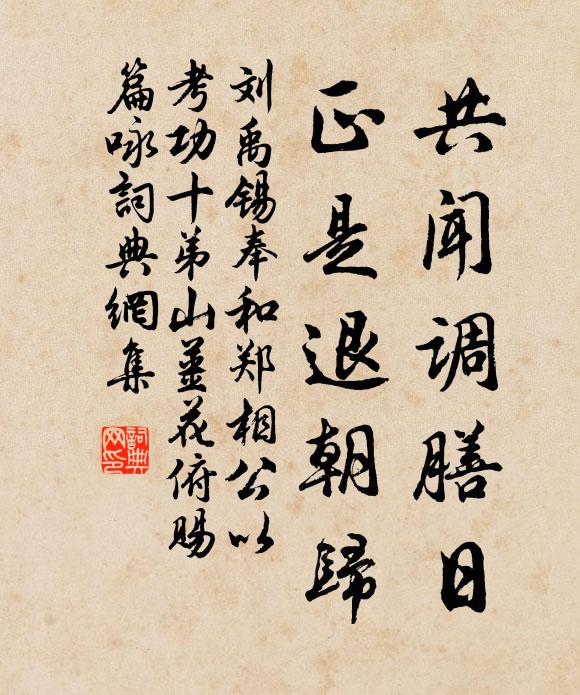 共闻调膳日
正是退朝歸
刘禹锡奉和郑相公以
考功十弟山薑花俯赐
篇咏詞典網集
詞典网印